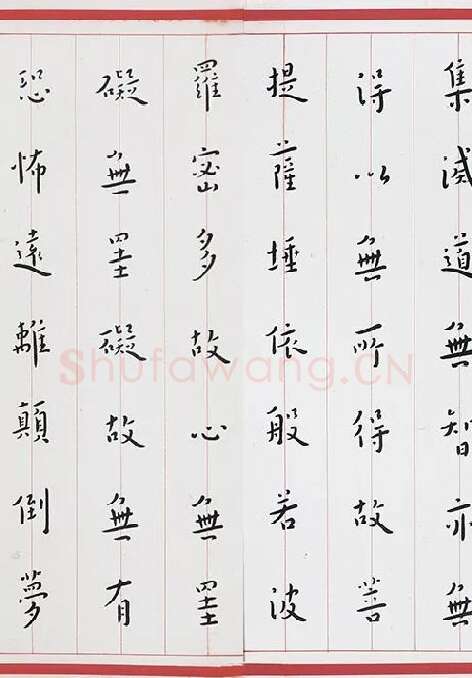 集滅道無智亦無
得以無所得故菩
提薩埵依般若波
羅蜜多故心無罣
礙無罣礙故無有
恐怖遠離顛倒夢
Shufawang.CN